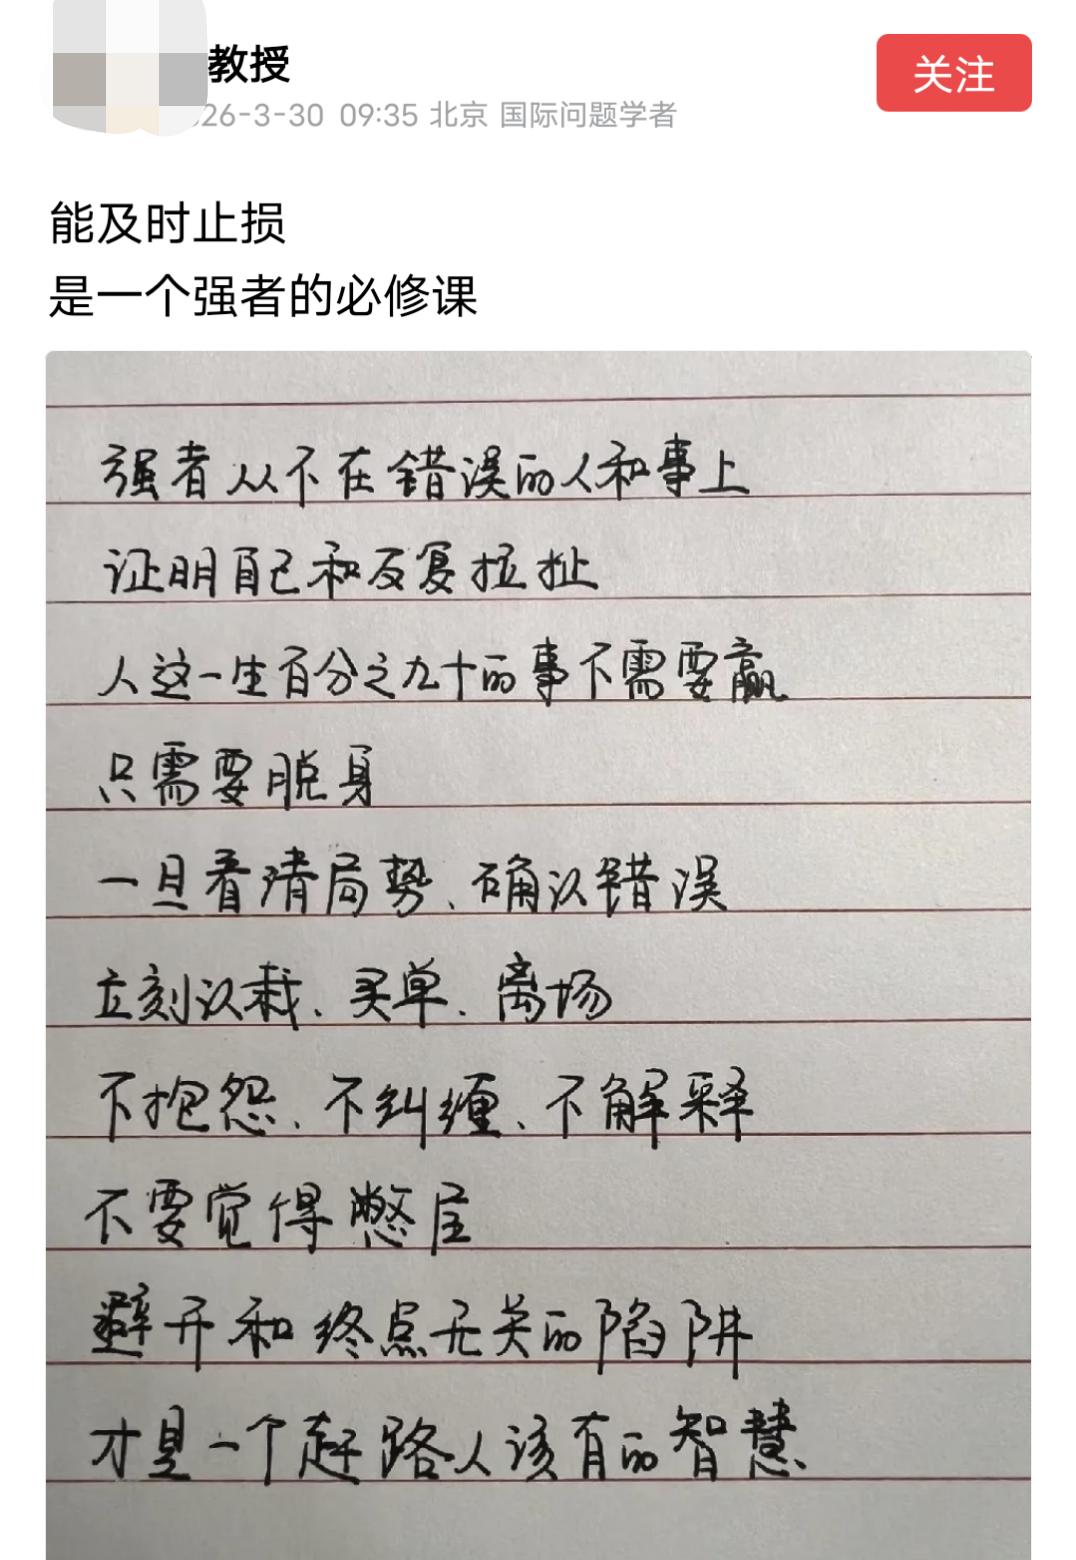 教授
26-3-30 09:35 北京 国际问题学者
关注
能及时止损
是一个强者的必修课
强者从不在错误的人和事上
证明自己和反复拉扯
人这一生百分之九十的事不需要赢
只需要脱身
一旦看清局势、确认错误
立刻认栽、买单、离场
不抱怨、不纠缠、不解释
不要觉得憋屈
避开和终点无关的陷阱
才是一个赶路人该有的智慧、